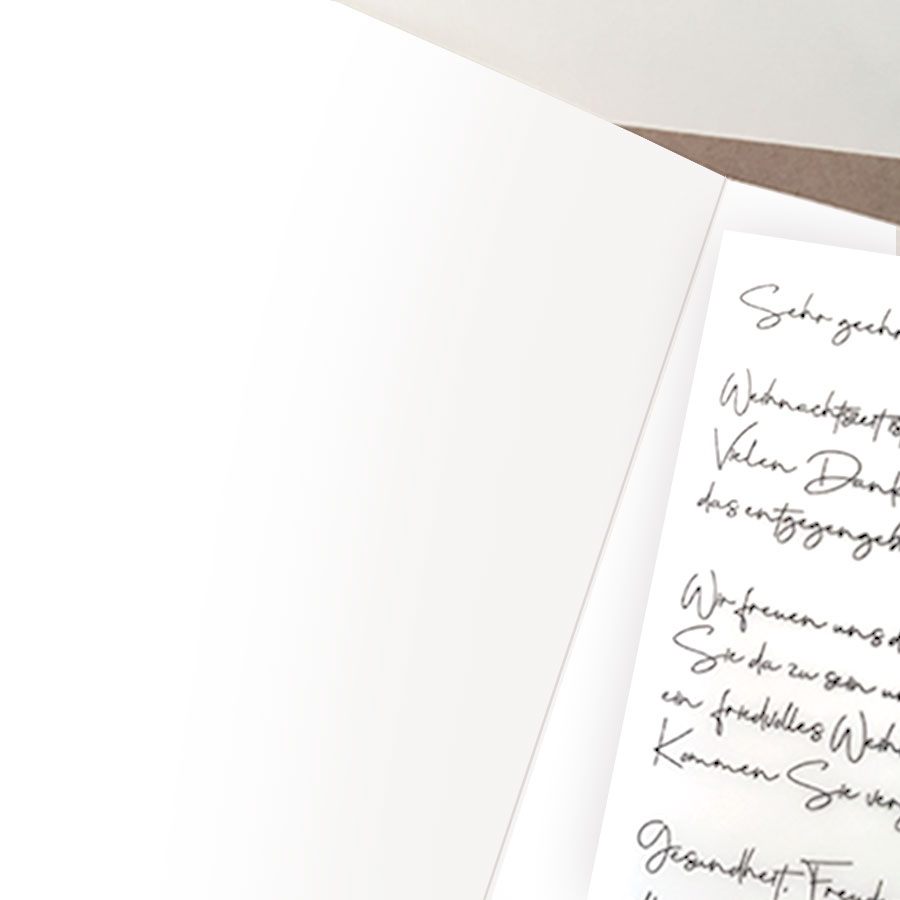 Sehr geehr
Weihnachtszeit is
Vielen Dank
das entgegengeb
Wir freuen uns d
Sie da zu sein un
ein friedvolles Weih
Kommen Sie ver
Gesundheit, Freud